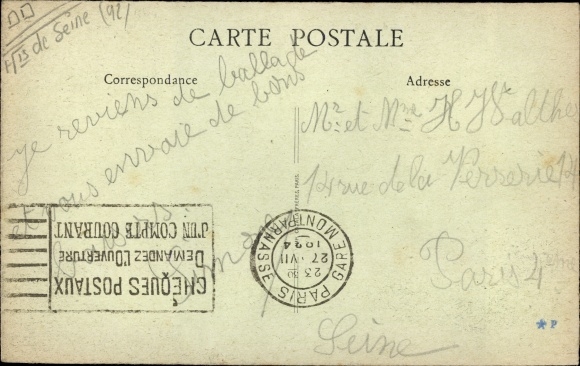 Hts de Seine (92)
CARTE POSTALE
Correspondance
Adresse
je reviens de ballade
et vous envoie de bons
baisers.
Mr et Mme H Walther
14 rue de la Verrerie 14
Paris 4
Seine
CHÈQUES POSTAUX
DEMANDEZ L'OUVERTURE
D'UN COMPTE COURANT
PARIS GARE MONTPARNASSE
23 30
27 · VII
1934
P